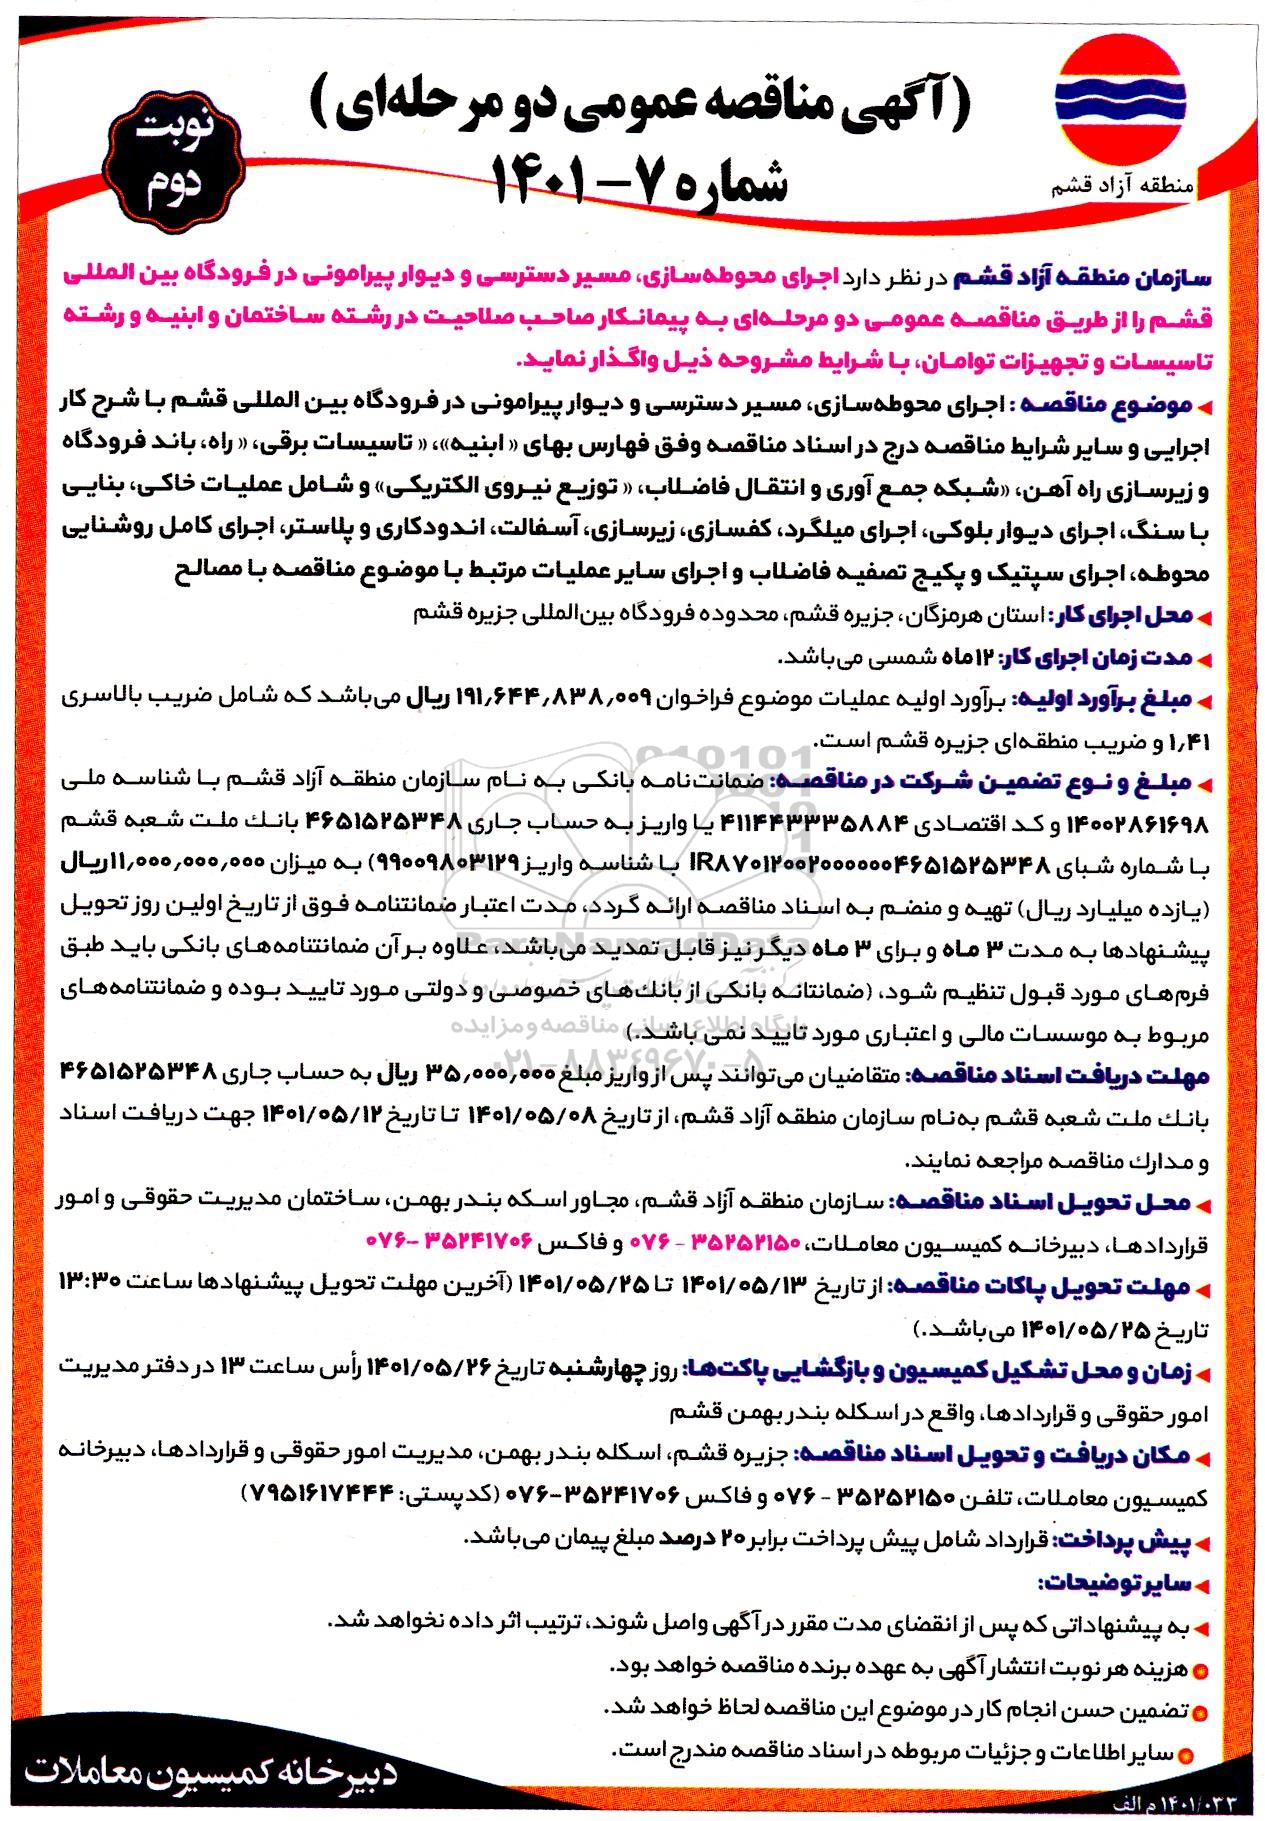 (آگهی مناقصه عمومی دو مرحله‌ای)
شماره ۷-۱۴۰۱
نوبت
دوم
منطقه آزاد قشم
سازمان منطقه آزاد قشم در نظر دارد اجرای محوطه‌سازی، مسیر دسترسی و دیوار پیرامونی در فرودگاه بین المللی
قشم را از طریق مناقصه عمومی دو مرحله‌ای به پیمانکار صاحب صلاحیت در رشته ساختمان و ابنیه و رشته
تاسیسات و تجهیزات توامان، با شرایط مشروحه ذیل واگذار نماید.
موضوع مناقصه: اجرای محوطه‌سازی، مسیر دسترسی و دیوار پیرامونی در فرودگاه بین المللی قشم با شرح کار
اجرایی و سایر شرایط مناقصه درج در اسناد مناقصه وفق فهارس بهای « ابنیه»، « تاسیسات برقی، « راه، باند فرودگاه
و زیرسازی راه آهن، «شبکه جمع آوری و انتقال فاضلاب، « توزیع نیروی الکتریکی» و شامل عملیات خاکی، بنایی
با سنگ، اجرای دیوار بلوکی، اجرای میلگرد، کفسازی، زیرسازی، آسفالت، اندودکاری و پلاستر، اجرای کامل روشنایی
محوطه، اجرای سپتیک و پکیج تصفیه فاضلاب و اجرای سایر عملیات مرتبط با موضوع مناقصه با مصالح
محل اجرای کار: استان هرمزگان، جزیره قشم، محدوده فرودگاه بین‌المللی جزیره قشم
مدت زمان اجرای کار: ۱۲ماه شمسی می‌باشد.
مبلغ برآورد اولیه: برآورد اولیه عملیات موضوع فراخوان ۱۹۱,۶۴۴,۸۳۸,۰۰۹ ریال می‌باشد که شامل ضریب بالاسری
۱٫۴۱ و ضریب منطقه‌ای جزیره قشم است.
مبلغ و نوع تضمین شرکت در مناقصه: ضمانت‌نامه بانکی به نام سازمان منطقه آزاد قشم با شناسه ملی
۱۴۰۰۲۸۶۱۶۹۸ و کد اقتصادی ۴۱۱۴۴۳۳۳۵۸۸۴ یا واریز به حساب جاری ۴۶۵۱۵۲۵۳۴۸ بانك ملت شعبه قشم
با شماره شبای IR۸۷۰۱۲۰۰۲۰۰۰۰۰۰۴۶۵۱۵۲۵۳۴۸ با شناسه واریز ۹۹۰۰۹۸۰۳۱۲۹) به میزان ۱۱,۰۰۰,۰۰۰,۰۰۰ریال
(یازده میلیارد ریال) تهیه و منضم به اسناد مناقصه ارائه گردد، مدت اعتبار ضمانتنامه فوق از تاریخ اولین روز تحویل
پیشنهادها به مدت ۳ ماه و برای ۳ ماه دیگر نیز قابل تمدید می‌باشد، علاوه بر آن ضمانتنامه‌های بانکی باید طبق
فرم‌های مورد قبول تنظیم شود، (ضمانتانه بانکی از بانك‌های خصوصی و دولتی مورد تایید بوده و ضمانتنامه‌های
مربوط به موسسات مالی و اعتباری مورد تایید نمی باشد.)
مهلت دریافت اسناد مناقصه: متقاضیان می‌توانند پس از واریز مبلغ ۳۵,۰۰۰,۰۰۰ ریال به حساب جاری ۴۶۵۱۵۲۵۳۴۸
بانك ملت شعبه قشم به‌نام سازمان منطقه آزاد قشم، از تاریخ ۱۴۰۱/۰۵/۰۸ تا تاریخ ۱۴۰۱/۰۵/۱۲ جهت دریافت اسناد
و مدارك مناقصه مراجعه نمایند.
محل تحویل اسناد مناقصه: سازمان منطقه آزاد قشم، مجاور اسکه بندر بهمن، ساختمان مدیریت حقوقی و امور
قراردادها، دبیرخانه کمیسیون معاملات، ۳۵۲۵۲۱۵۰ - ۰۷۶ و فاکس ۳۵۲۴۱۷۰۶ -۰۷۶
مهلت تحویل پاکات مناقصه: از تاریخ ۱۴۰۱/۰۵/۱۳ تا ۱۴۰۱/۰۵/۲۵ (آخرین مهلت تحویل پیشنهادها ساعت ۱۳:۳۰
تاریخ ۱۴۰۱/۰۵/۲۵ می‌باشد.)
زمان و محل تشکیل کمیسیون و بازگشایی پاکت‌ها: روز چهارشنبه تاریخ ۱۴۰۱/۰۵/۲۶ رأس ساعت ۱۳ در دفتر مدیریت
امور حقوقی و قراردادها، واقع در اسکله بندر بهمن قشم
مکان دریافت و تحویل اسناد مناقصه: جزیره قشم، اسکله بندر بهمن، مدیریت امور حقوقی و قراردادها، دبیرخانه
کمیسیون معاملات، تلفن ۳۵۲۵۲۱۵۰ - ۰۷۶ و فاکس ۳۵۲۴۱۷۰۶-۰۷۶ (کدپستی: ۷۹۵۱۶۱۷۴۴۴)
پیش پرداخت: قرارداد شامل پیش پرداخت برابر ۲۰ درصد مبلغ پیمان می‌باشد.
سایر توضیحات:
به پیشنهاداتی که پس از انقضای مدت مقرر در آگهی واصل شوند، ترتیب اثر داده نخواهد شد.
هزینه هر نوبت انتشار آگهی به عهده برنده مناقصه خواهد بود.
تضمین حسن انجام کار در موضوع این مناقصه لحاظ خواهد شد.
سایر اطلاعات و جزئیات مربوطه در اسناد مناقصه مندرج است.
دبیرخانه کمیسیون معاملات
۱۴۰۱/۰۳۳ م الف
ParsNamadData
پایگاه اطلاع رسانی مناقصه و مزایده
۰۲۱-۸۸۳۴۹۶۷۰-۵